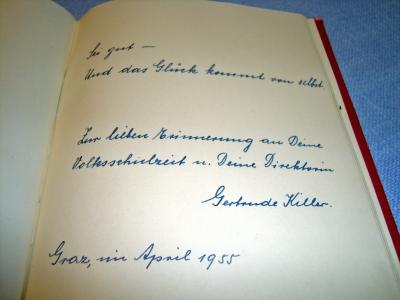 Sei gut —
Und das Glück kommt von selbst.
Zur lieben Erinnerung an Deine
Volksschulzeit u. Deine Direktorin
Gertrude Killer.
Graz, im April 1955